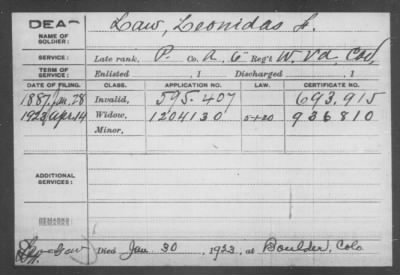 DEAD
NAME OF SOLDIER: Law, Leonidas L.
SERVICE: Late rank, P. Co. A, 6 Reg't W. Va. Cav.
TERM OF SERVICE: Enlisted , 1 Discharged , 1
DATE OF FILING. CLASS. APPLICATION NO. LAW. CERTIFICATE NO.
1887, Jan. 28 Invalid, 595.407 693,915
1923, Apr. 14 Widow, 1204130 5-1-20 936810
Minor,
ADDITIONAL SERVICES:
REMARKS:
Died Jan. 30, 1923, at Boulder, Colo